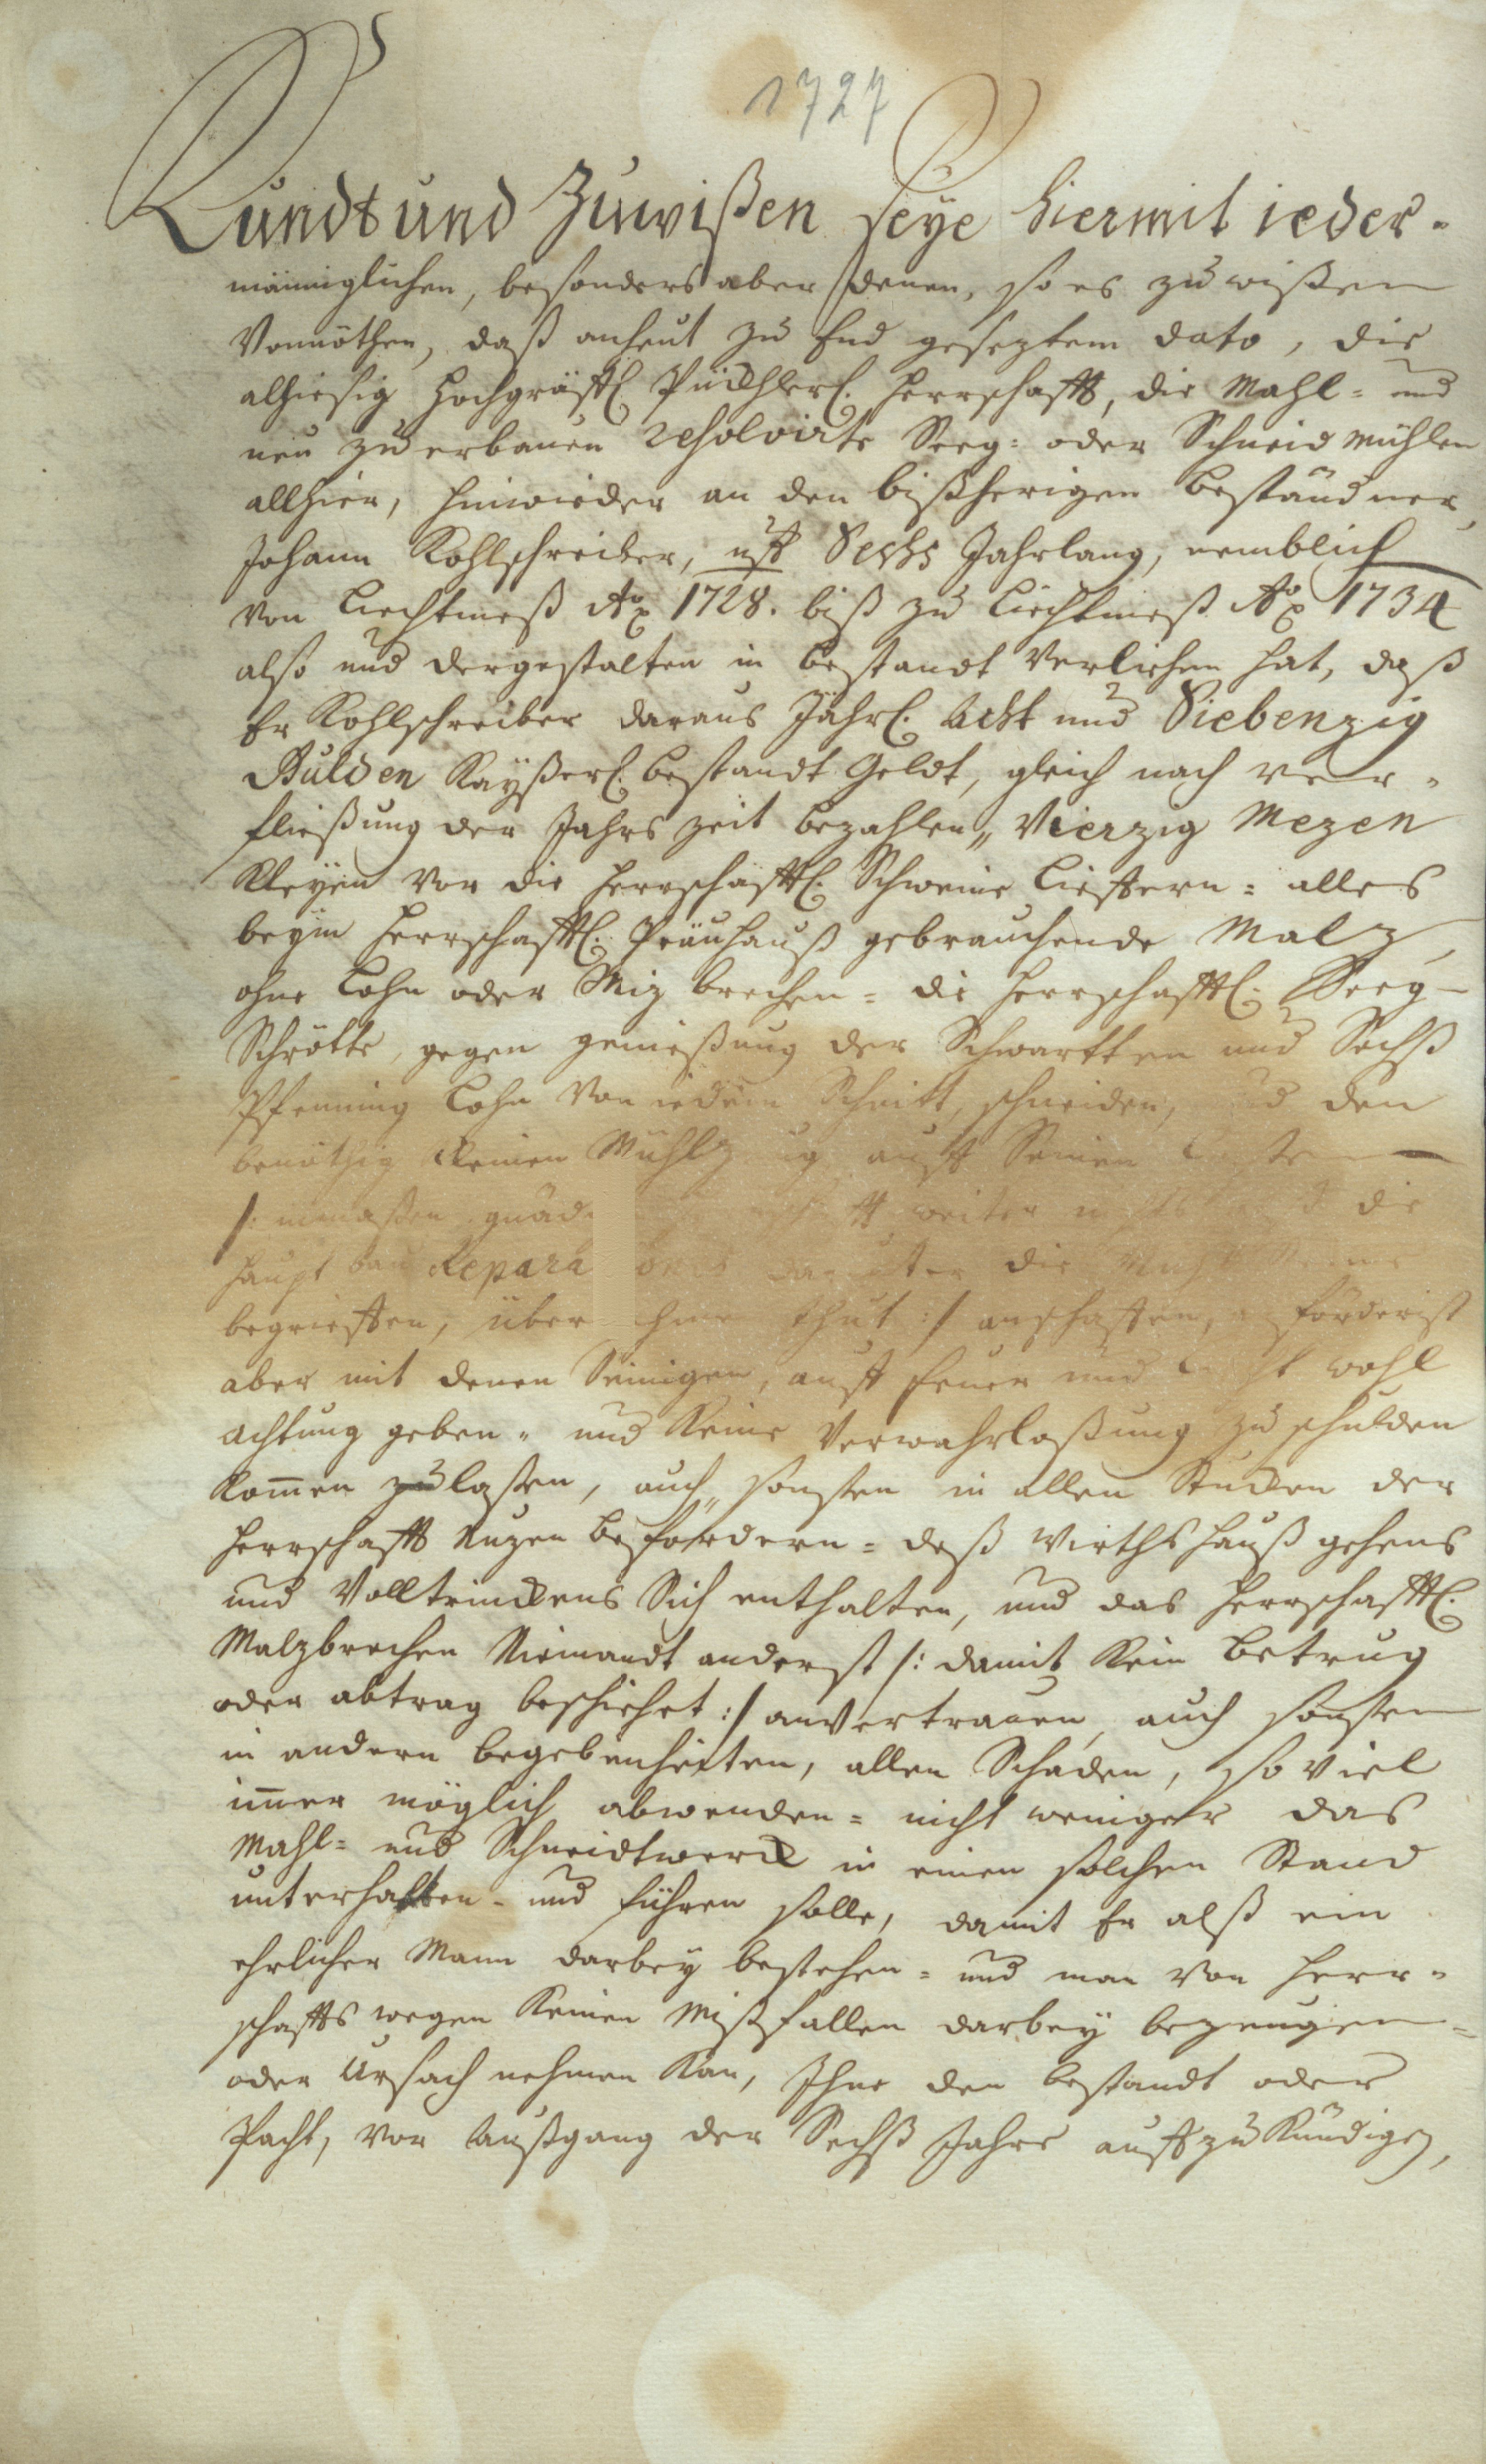 1727
Kundt und Zuwißen seye hiermit ieder-
männiglichen, besonders aber denen, so es zu wißen
Vonnöthen, daß anheut zu End geseztem dato, die
alhiesig Hochgräffl. Pücklerl. Herrschafft, die Mahl- und
neu zu erbauen resolvirte Seeg- oder Schneid Mühlen
allhier, hinwieder an den bißherigen Beständner,
Johann Kohlschreiber, uff Sechs Jahrlang, nemblich
von Liechtmeß Ao 1728. biß zu Liechtmeß Ao 1734
also und dergestalten in bestandt Verliehen hat, daß
Er Kohlschreiber daraus Jährl. Acht und Siebenzig
Gulden Kayßerl. bestandt Geldt, gleich nach ver-
fließung der Jahrs zeit bezahlen, Vierzig Mezen
Kleyen vor die Herrschafftl. Schweine Lieffern = alles
beym Herrschafftl. Präuhauß gebrauchende Malz,
ohne Lohn oder Miz brechen = die Herrschafftl. Seeg-
Schrötte, gegen geniesung der Schwartten und Sechß
Pfenning Lohn Von iedem Schnitt, schneiden, den
benöthig kleinen Mühlzeug auff Seinen
/: inmaßen gnäd. weiter die
Haupt bau Repara
begrieffen, über thut :/ anschaffen, forderist
aber mit denen Seinigen, auff Feuer und wohl
achtung geben, und Keine Verwahrloßung zu schulden
kommen zu laßen, auch sonsten in allen Stucken der
Herrschafft Nuzen befordern = deß Wirthshauß gehens
und Volltrinckens Sich enthalten, und das Herrschafftl.
Malzbrechen Niemandt anderst /: damit Kein Betrug
oder abtrag beschiehet :/ anvertrauen, auch sonsten
in andern begebenheiten, allen Schaden, so viel
immer möglich abwenden = nicht weniger das
Mahl- und Schneidtwerck in einen solchen Stand
unterhalten- und führen solle, damit Er alß ein
ehrlicher Mann darbey bestehen = und man von Herr-
schaffts wegen Keinen Mißfallen darbey bezeugen =
oder Ursach nehmen Kan, Ihne den bestandt oder
Pacht, vor Außgang der Sechß Jahre auffzukündigen,